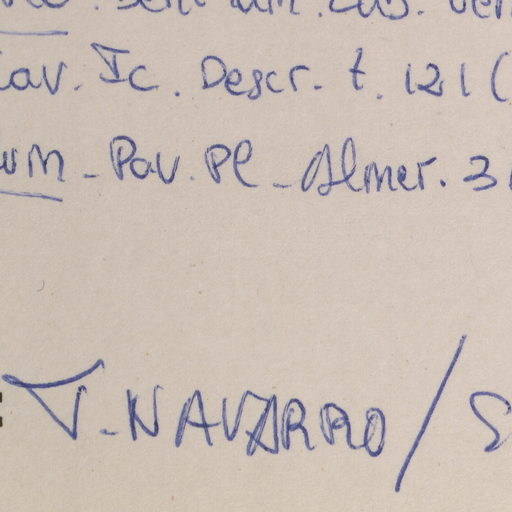 Cav. Ic. Descr. t. 121 (
um - Pav. Pl - Almer. 31
: T. NAVARRO / S